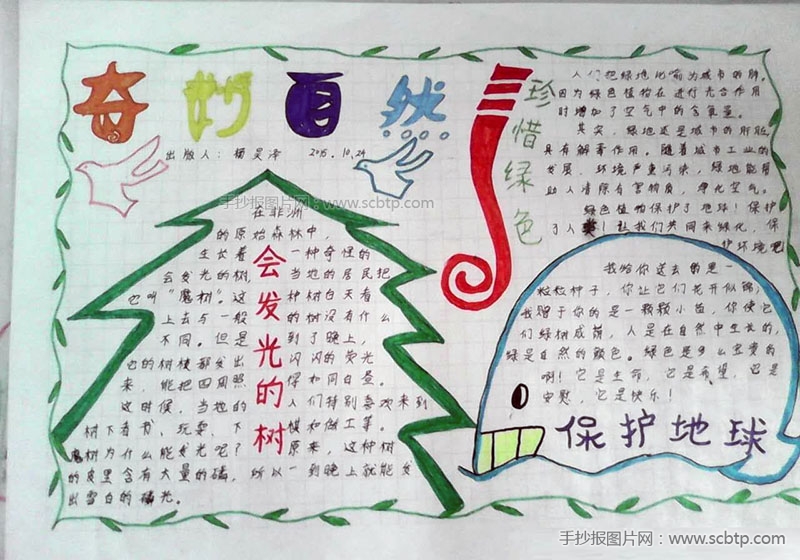 奇妙自然
出版人：杨昊泽 2015.10.24
手抄报图片网：www.scbtp.com
手抄报图片网：www.scbtp.com
会发光的树
在非洲
的原始森林中，
生长着一种奇怪的
会发光的树，当地的居民把
它叫“魔树”。这种树白天看
上去与一般的树没有什么
不同。但是到了晚上，
它的树枝都发出闪闪的荧光
来，能把四周照得如同白昼。
这时候，当地的人们特别喜欢来到
树下看书、玩耍、下棋和做工等。
魔树为什么能发光呢？原来，这种树
的皮里含有大量的磷，所以一到晚上就能发
出雪白的磷光。
珍惜绿色
人们把绿地比喻为城市的肺，
因为绿色植物在进行光合作用
时增加了空气中的含氧量。
其实，绿地还是城市的肝脏，
具有解毒作用。随着城市工业的
发展，环境严重污染，绿地能帮
助人清除有害物质，净化空气。
绿色植物保护了地球！保护
了人类！让我们共同来绿化，保
护环境吧
我给你送去的是一
粒粒种子，你让它们花开似锦；
我赐于你的是一颗颗小苗，你使它
们绿树成荫，人是在自然中生长的，
绿是自然的颜色。绿色是多么宝贵的
啊！它是生命，它是希望，它是
安慰，它是快乐！
保护地球
手抄报图片网：www.scbtp.com